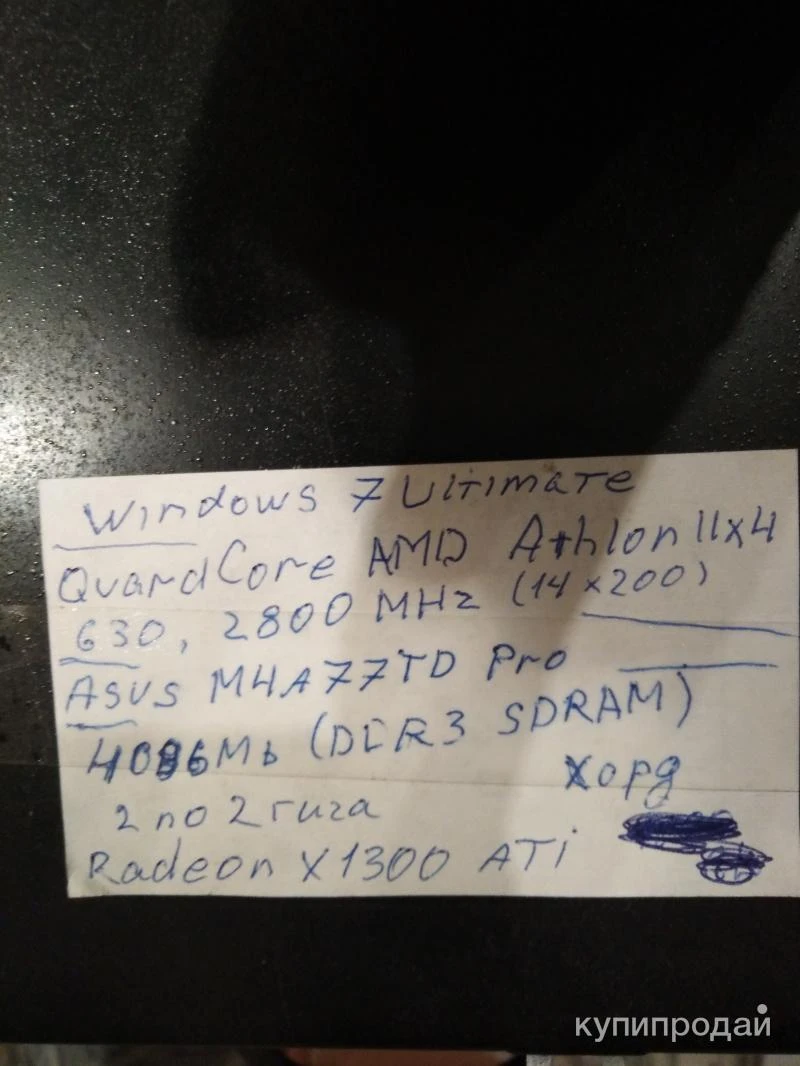 Windows 7 Ultimate
QuardCore AMD Athlon II x4
630, 2800 MHz (14 x 200)
Asus M4A77TD Pro
4096Mb (DDR3 SDRAM)
2 по 2 гига хорд
Radeon X1300 ATi
купипродай